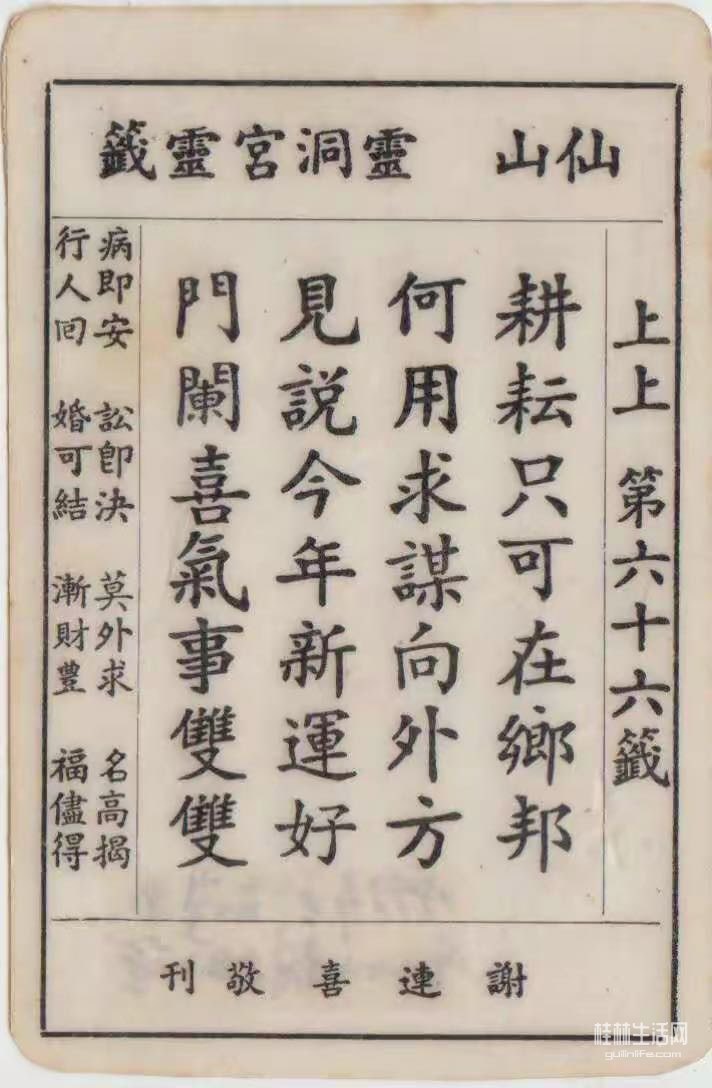 仙山 靈洞宮靈籤
上上 第六十六籤
耕耘只可在鄉邦
何用求謀向外方
見説今年新運好
門闌喜氣事雙雙
病即安 訟即決 莫外求 名高揭
行人回 婚可結 漸財豐 福儘得
謝連喜敬刊
桂林生活网
guilinlife.com